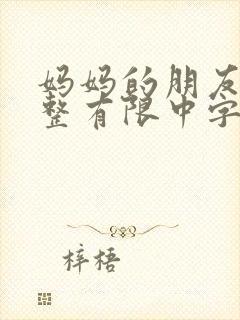 妈妈的朋友
整有限中字
梓梧